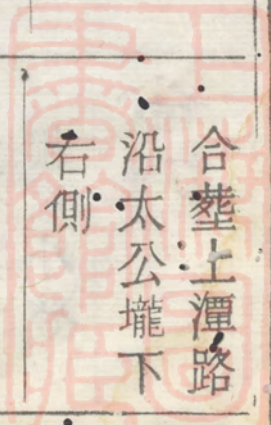 合塟上潭路
沿太公壠下
右側